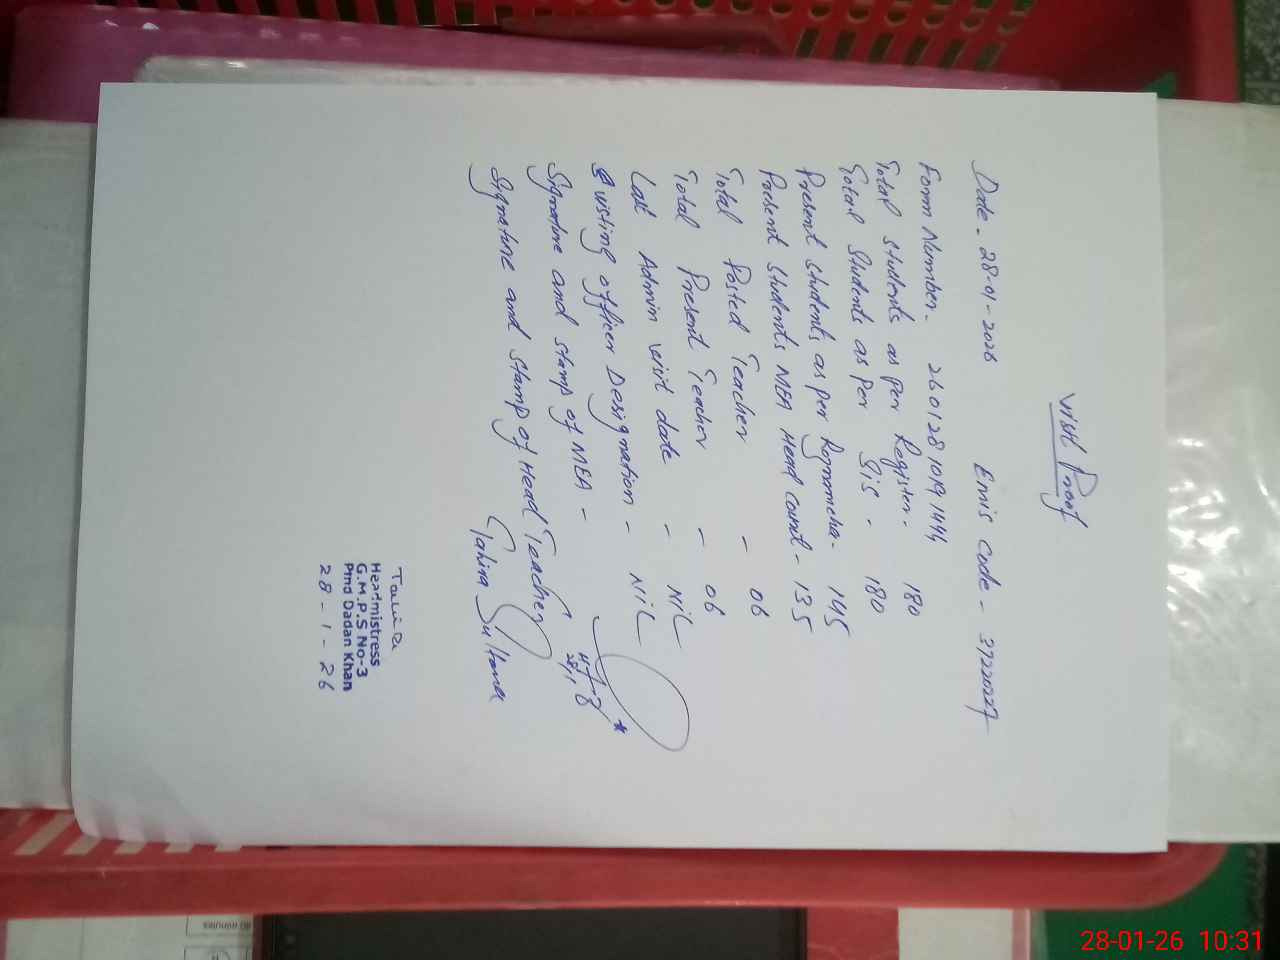 Visit Proof
Date - 28-01-2026 Emis Code - 37220227
Form Number - 26012810191444
Total Students as per Register - 180
Total Students as per Sis - 180
Present Students as per Rozmmcha - 145
Present Students MEA Head Count - 135
Total Posted Teacher - 06
Total Present Teacher - 06
Last Admin visit date - NiL
visting officer Designation - NiL
Signature and stamp of MEA -
28/1
Signature and stamp of Head Teacher
Tahira Sultana
Headmistress
G.M.P.S No-3
Pind Dadan Khan
28-1-26
40 minutes
28-01-26 10:31